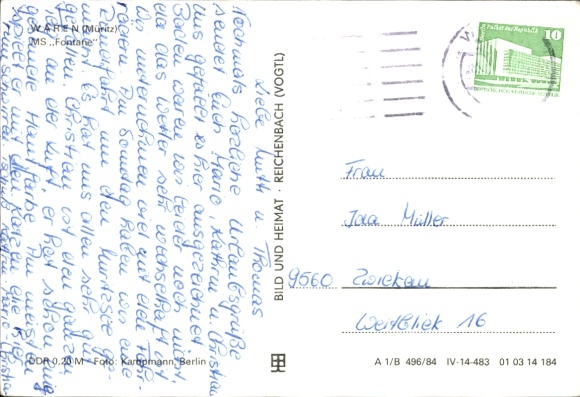 WAREN (Müritz)
MS „Fontane"
Liebe Mutti u. Thomas
Nochmals herzliche Urlaubsgrüße
sendet Euch Mario, Kathrin u. Christian
uns gefällt es hier ausgezeichnet
Baden waren wir leider noch nicht,
da das Wetter sehr wechselhaft ist.
Wir unternehmen viel mit den Fahr-
rädern. Am Sonntag haben wir eine
Dampferfahrt um den
macht. Es hat uns allen sehr gut
gefallen. Christian ist den ganzen
Tag an der Luft, er hat schon eine
gesunde Hautfarbe. Am meisten
BILD UND HEIMAT · REICHENBACH (VOGTL)
10
Palast der Republik
Frau
Müller
9560 Zwickau
Weitblick 16
DDR 0,20 M Foto: Kampmann, Berlin
A 1/B 496/84 IV-14-483 01 03 14 184